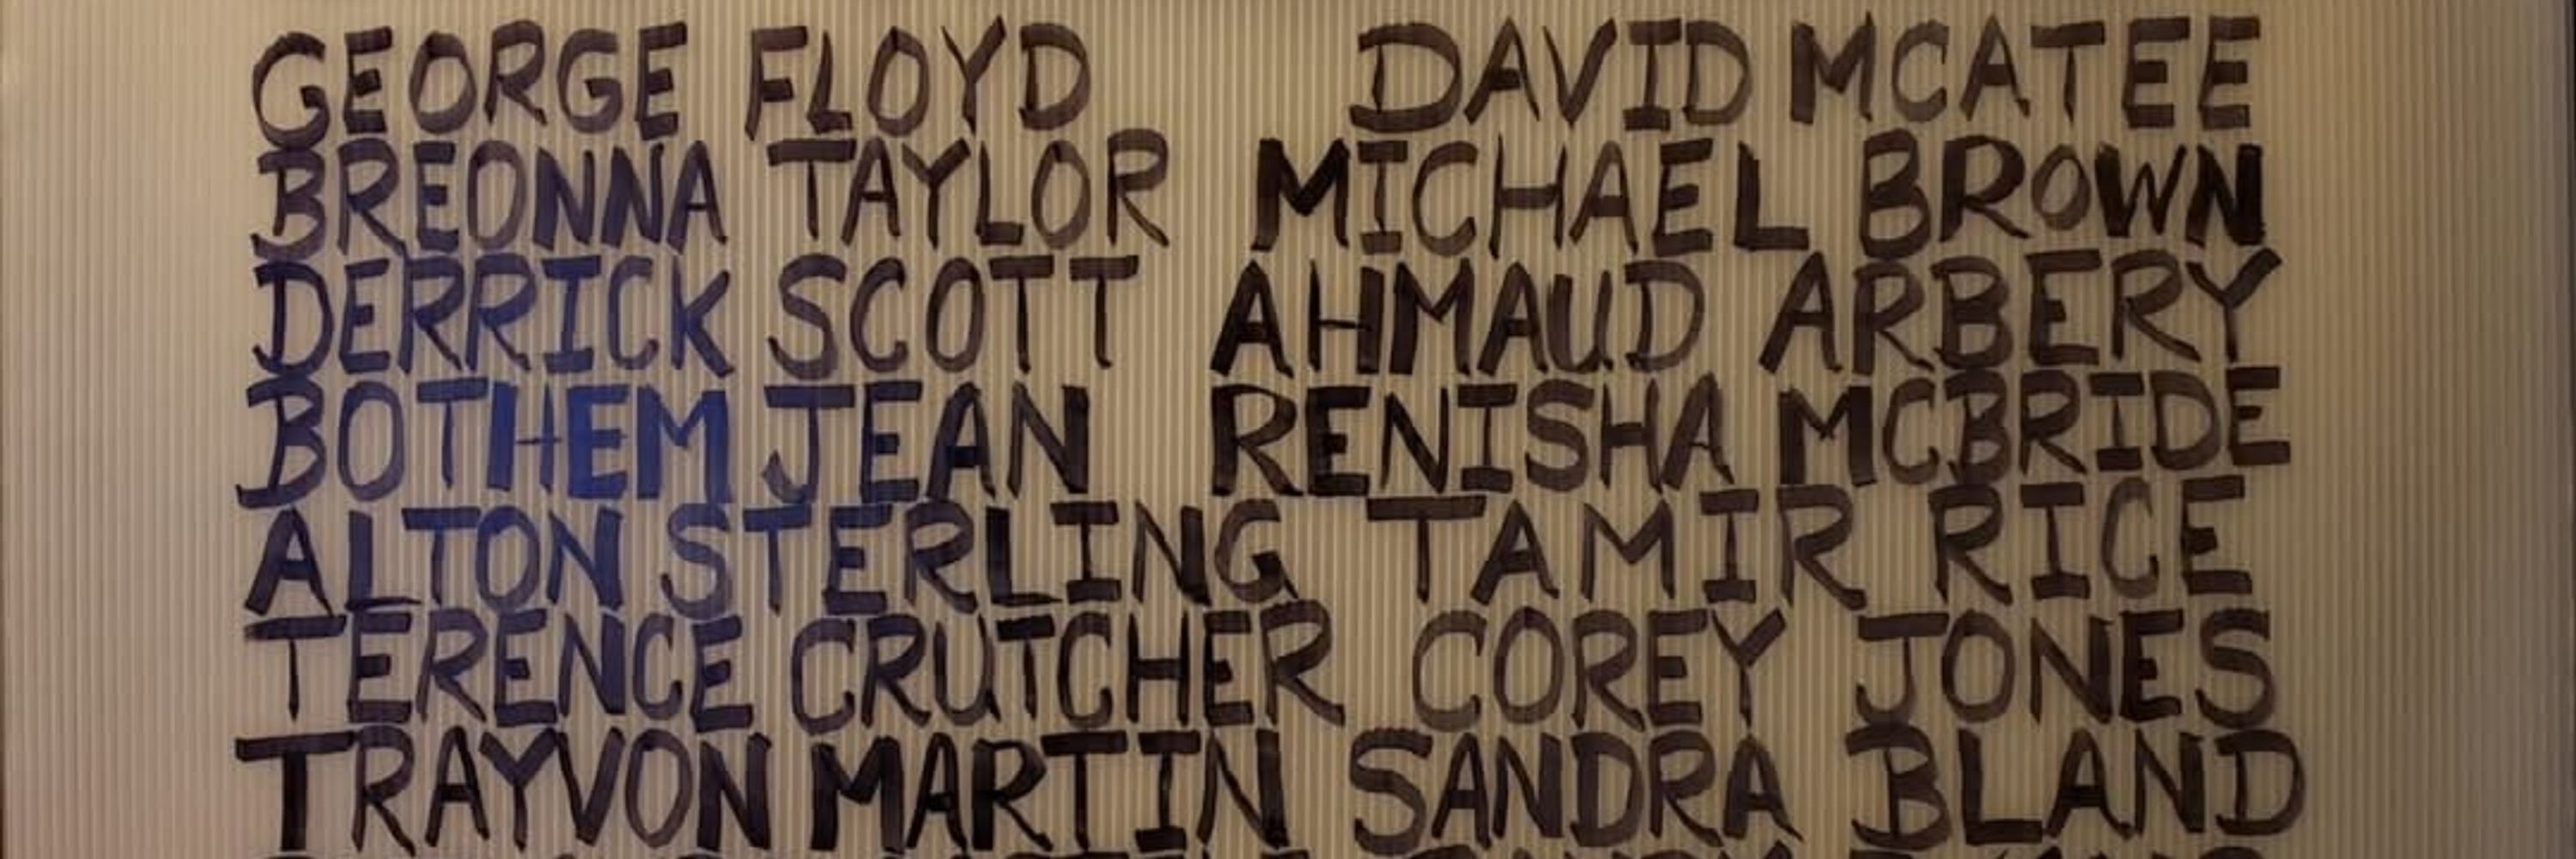 GEORGE FLOYD DAVID MCATEE
BREONNA TAYLOR MICHAEL BROWN
DERRICK SCOTT AHMAUD ARBERY
BOTHEM JEAN RENISHA MCBRIDE
ALTON STERLING TAMIR RICE
TERENCE CRUTCHER COREY JONES
TRAYVON MARTIN SANDRA BLAND